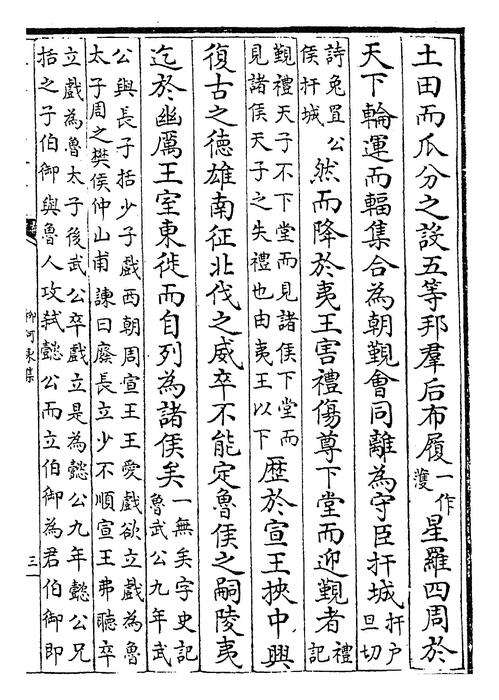 土田而瓜分之設五等邦羣后布履一作濩星羅四周於
天下輪運而輻集合為朝覲會同離為守臣扞城扞户旦切
詩兔罝公侯扞城然而降於夷王害禮傷尊下堂而迎覲者禮記
覲禮天子不下堂而見諸侯下堂而見諸侯天子之失禮也由夷王以下歴於宣王挾中興
復古之徳雄南征北伐之威卒不能定魯侯之嗣陵夷
迄於幽厲王室東徙而自列為諸侯矣一無矣字史記魯武公九年武
公與長子括少子戲西朝周宣王王愛戲欲立戲為魯
太子周之樊侯仲山甫諫曰廢長立少不順宣王弗聽卒
立戲為魯太子後武公卒戲立是為懿公九年懿公兄
括之子伯御與魯人攻弑懿公而立伯御為君伯御即
柳河東集
三